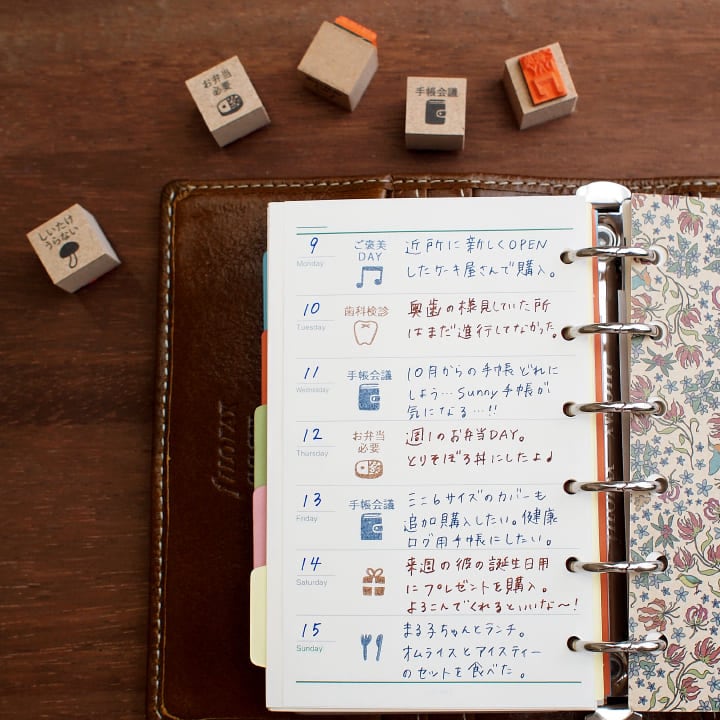 お弁当
必要
手帳会議
しいたけ
うらない
9
Monday
ご褒美
DAY
近所に新しくOPEN
したケーキ屋さんで購入。
10
Tuesday
歯科検診
奥歯の様見していた所
はまだ進行してなかった。
11
Wednesday
手帳会議
10月からの手帳どれに
しよう…Sunny手帳が
気になる…!!
12
Thursday
お弁当
必要
週1のお弁当DAY。
とりそぼろ丼にしたよ♪
13
Friday
手帳会議
ミニ6サイズのカバーも
追加購入したい。健康
ログ用手帳にしたい。
14
Saturday
来週の彼の誕生日用
にプレゼントを購入。
よろこんでくれるといいな〜!
15
Sunday
まる子ちゃんとランチ。
オムライスとアイスティー
のセットを食べた。